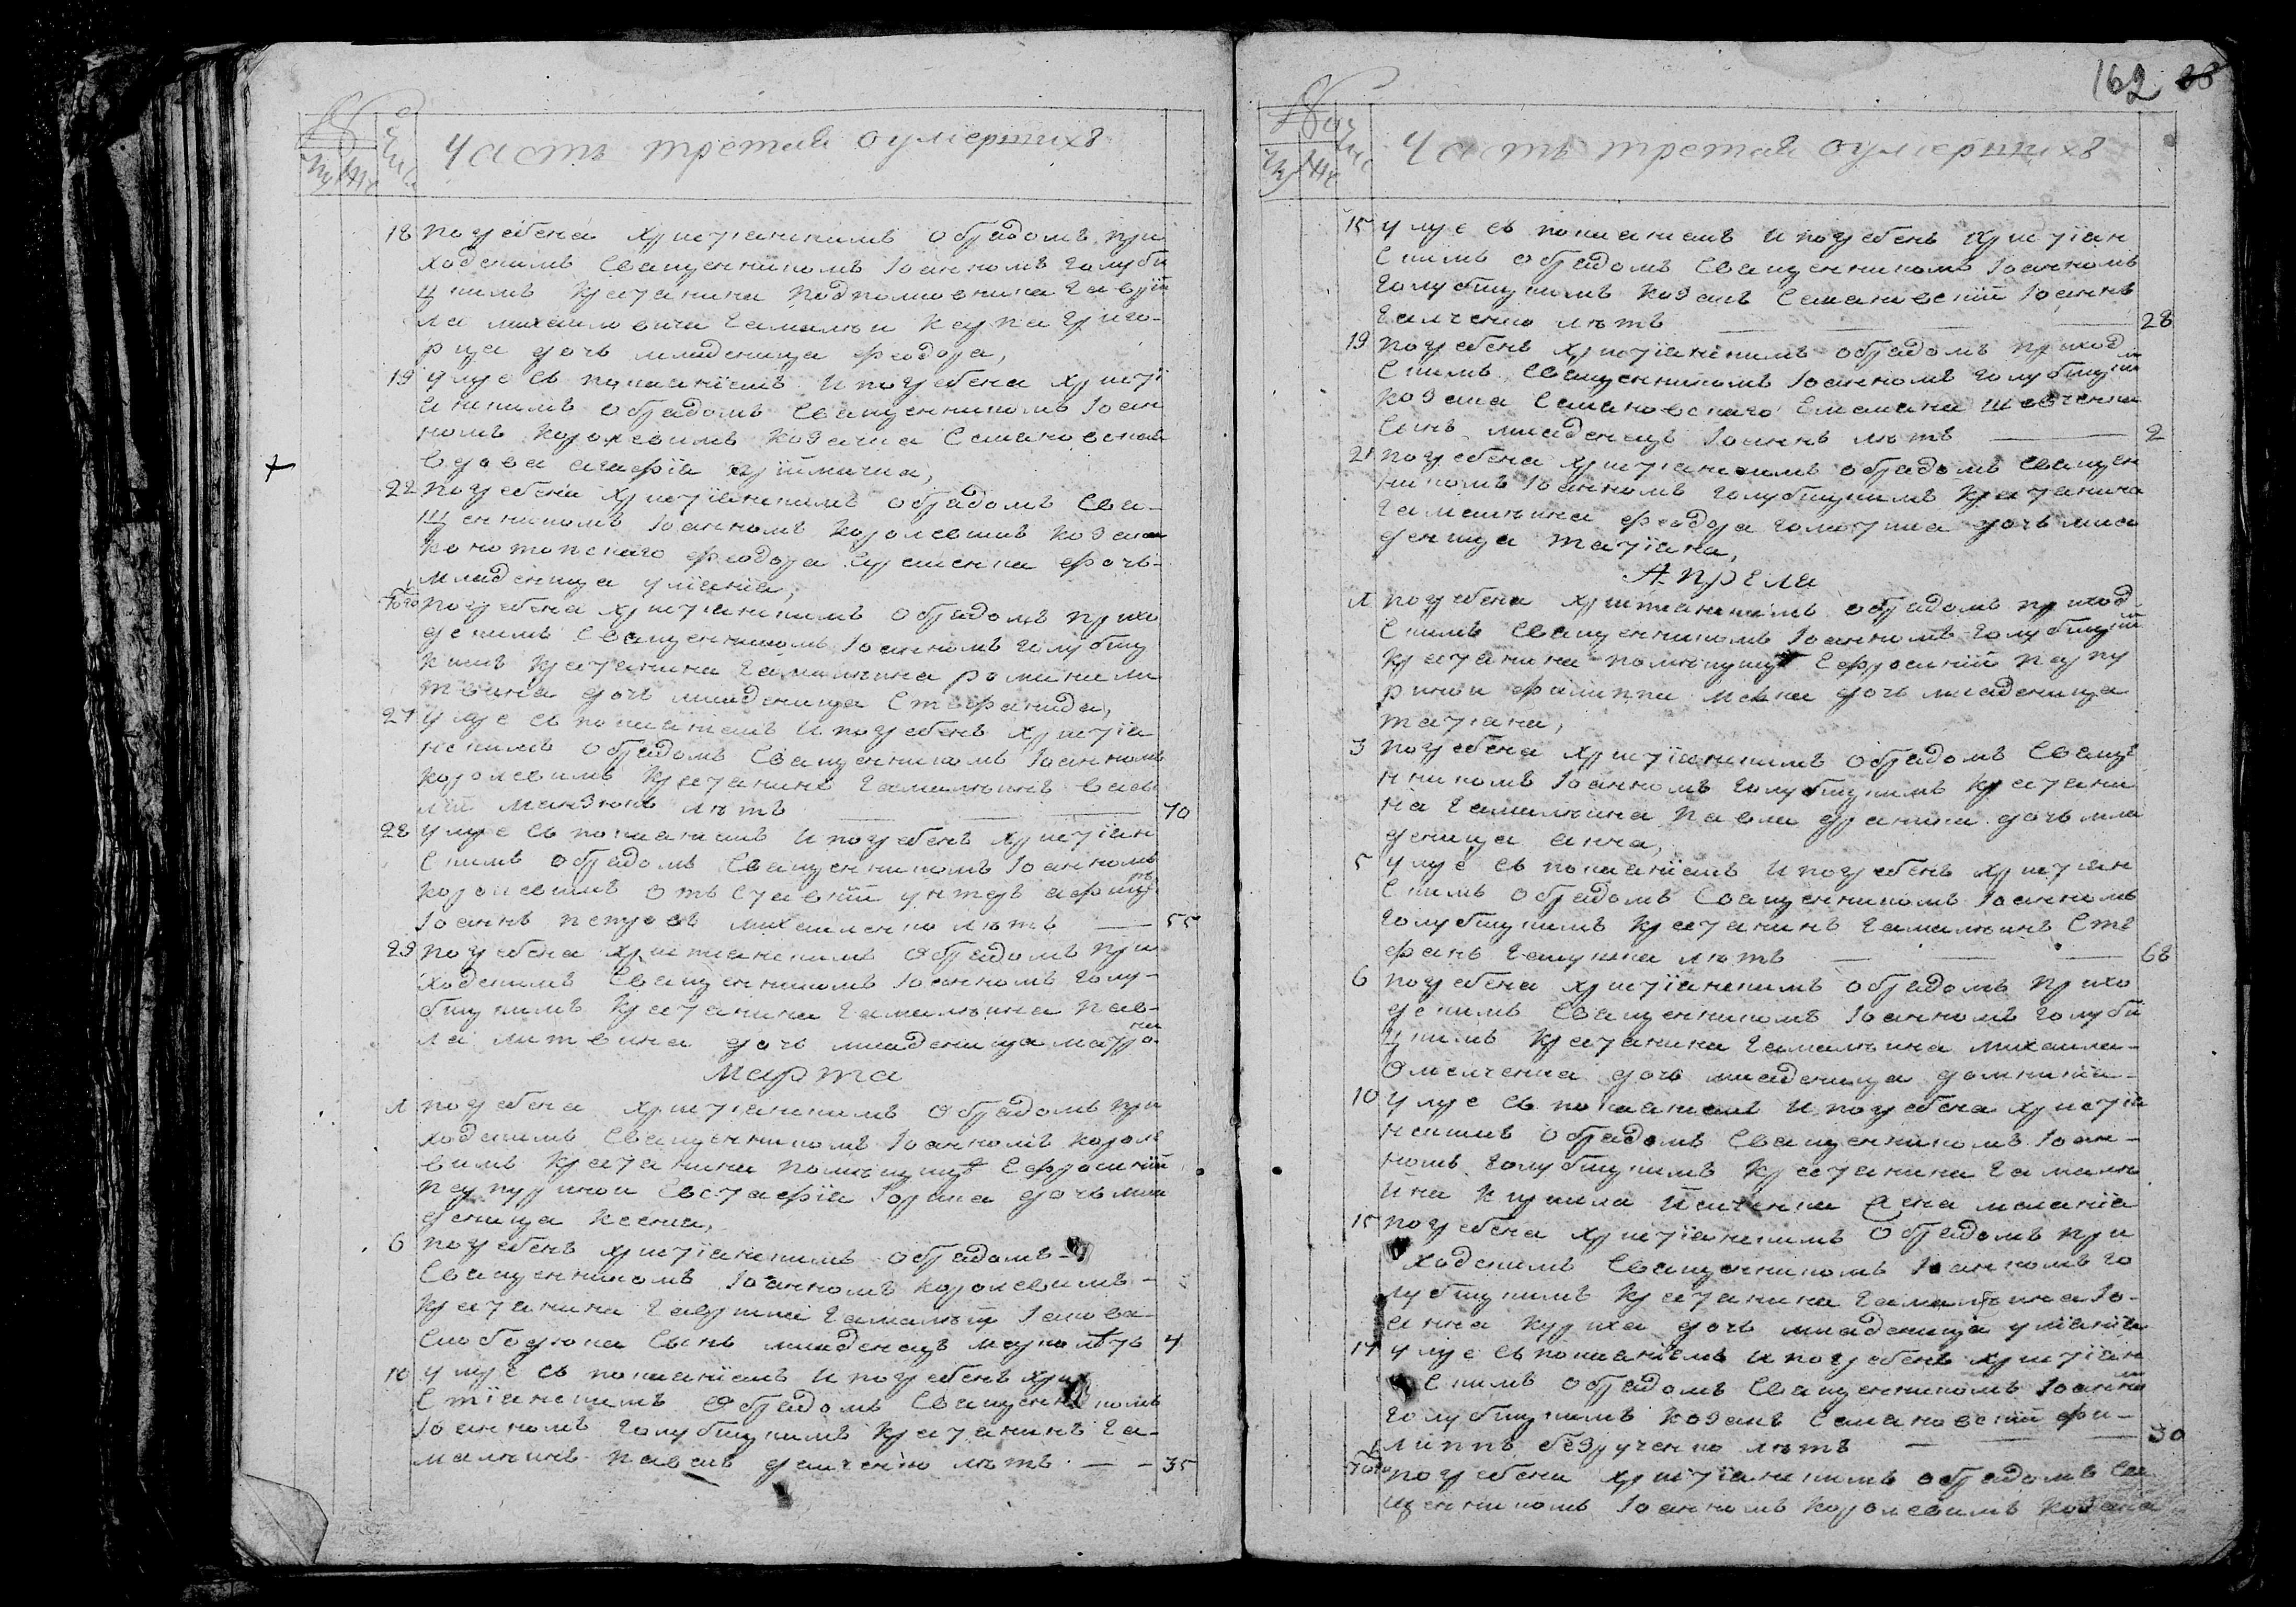 Часть третая о умершихъ
18 погребена христіанскимъ обрядомъ при
ходскимъ Священникомъ Іоанномъ Голуби
цкимъ крестянина подполковника Гаврїи
ла михаиловича Гамалѣи Григо-
рца дочь младеница феодора,
19 умре съ покаяніемъ и погребена христі
анскимъ обрядомъ Священникомъ Іоан
номъ королевимъ козачка Семяновская
вдова агафїа
22 погребена христіанскимъ обрядомъ Свя-
щенникомъ Іоанномъ королевимъ козака
конотопскаго феодора дочь
младеница уліанїа,
того погребена христіанскимъ обрядомъ прихо
дскимъ Священникомъ Іоанномъ Голубиц
кимъ крестянина Гамалѣина романа ли
твина дочь младеница Стефанида,
27 умре съ покаяніемъ и погребенъ христіа
нскимъ обрядомъ Священникомъ Іоанномъ
королевимъ крестянинъ Гамалѣинъ васи
лїй манзюкъ лѣтъ 70
28 умре съ покаяніемъ и погребенъ христіан
скимъ обрядомъ Священникомъ Іоанномъ
королевимъ отъставнїй унтеръ афицеръ
Іоаннъ петровъ михаиленко лѣтъ 55
29 погребена христианскимъ обрядомъ при
ходскимъ Священникомъ Іоанномъ Голу-
бицкимъ крестянина Гамалѣина пав-
ла литвина дочь младеница матрона
марта
1 погребена христіанскимъ обрядомъ при
ходскимъ Священникомъ Іоанномъ короле
вимъ крестянина помѣщици Ефросинїи
Евстафїа дочь мла
деница ксенїа,
6 погребенъ христіанскимъ обрядомъ
Священникомъ Іоанномъ королевимъ
крестянина Гаврила Гамалѣи Іакова
Слободюка Сынъ младенецъ марко лѣтъ 4
10 умре съ покаяніемъ и погребенъ хри
стїанскимъ обрядомъ Священникомъ
Іоанномъ Голубицкимъ крестянинъ Га-
малѣинъ павелъ демченко лѣтъ 35
162
Часть третая о умершихъ
15 умре съ покаяніемъ и погребенъ христїан
скимъ обрядомъ Священникомъ Іоанномъ
Голубицкимъ козакъ Семяновскїй Іоаннъ
Галченко лѣтъ 28
19 погребенъ христїанскимъ обрядомъ приход
скимъ Священникомъ Іоанномъ Голубицкимъ
козака Семяновскаго Емелїана шевченка
Сынъ младенецъ Іоаннъ лѣтъ 2
21 погребена христїанскимъ обрядомъ Священ
никомъ Іоанномъ Голубицкимъ крестянина
Гамалѣина феодора дочь мла
деница татїана,
Апреля
1 погребена христианскимъ обрядомъ приход
скимъ Священникомъ Іоанномъ Голубицкїм
крестянина помѣщици Ефросинїи
филиппа дочь младеница
татіана,
3 погребена христїанскимъ обрядомъ Свяще
нникомъ Іоанномъ Голубицкимъ крестяни
на Гамалѣина павла дочь мла
деница анна,
5 умре съ покаянїемъ и погребенъ христїан
скимъ обрядомъ Священникомъ Іоанномъ
Голубицкимъ крестянинъ Гамалѣинъ Сте
фанъ лѣтъ 68
6 погребена христїанскимъ обрядомъ прихо
дскимъ Священникомъ Іоанномъ Голуби
цкимъ крестянина Гамалѣина михаила
Омелченка дочь младеница домникїа
10 умре съ покаяніемъ и погребена христїа
нскимъ обрядомъ Священникомъ Іоан-
номъ Голубицкимъ крестянина Гамалѣ
ина кирила жена меланїа
15 погребена христїанскимъ обрядомъ при
ходскимъ Священникомъ Іоанномъ Го
лубицкимъ крестянина Гамалѣина Іо-
анна дочь младеница улїанїа
17 умре съ покаянїемъ и погребенъ христїан
скимъ обрядомъ Священникомъ Іоанном
Голубицкимъ козакъ Семяновскїй фи-
липпъ безрученко лѣтъ 30
того погребена христїанскимъ обрядомъ Свя
щенникомъ Іоанномъ королевимъ козака